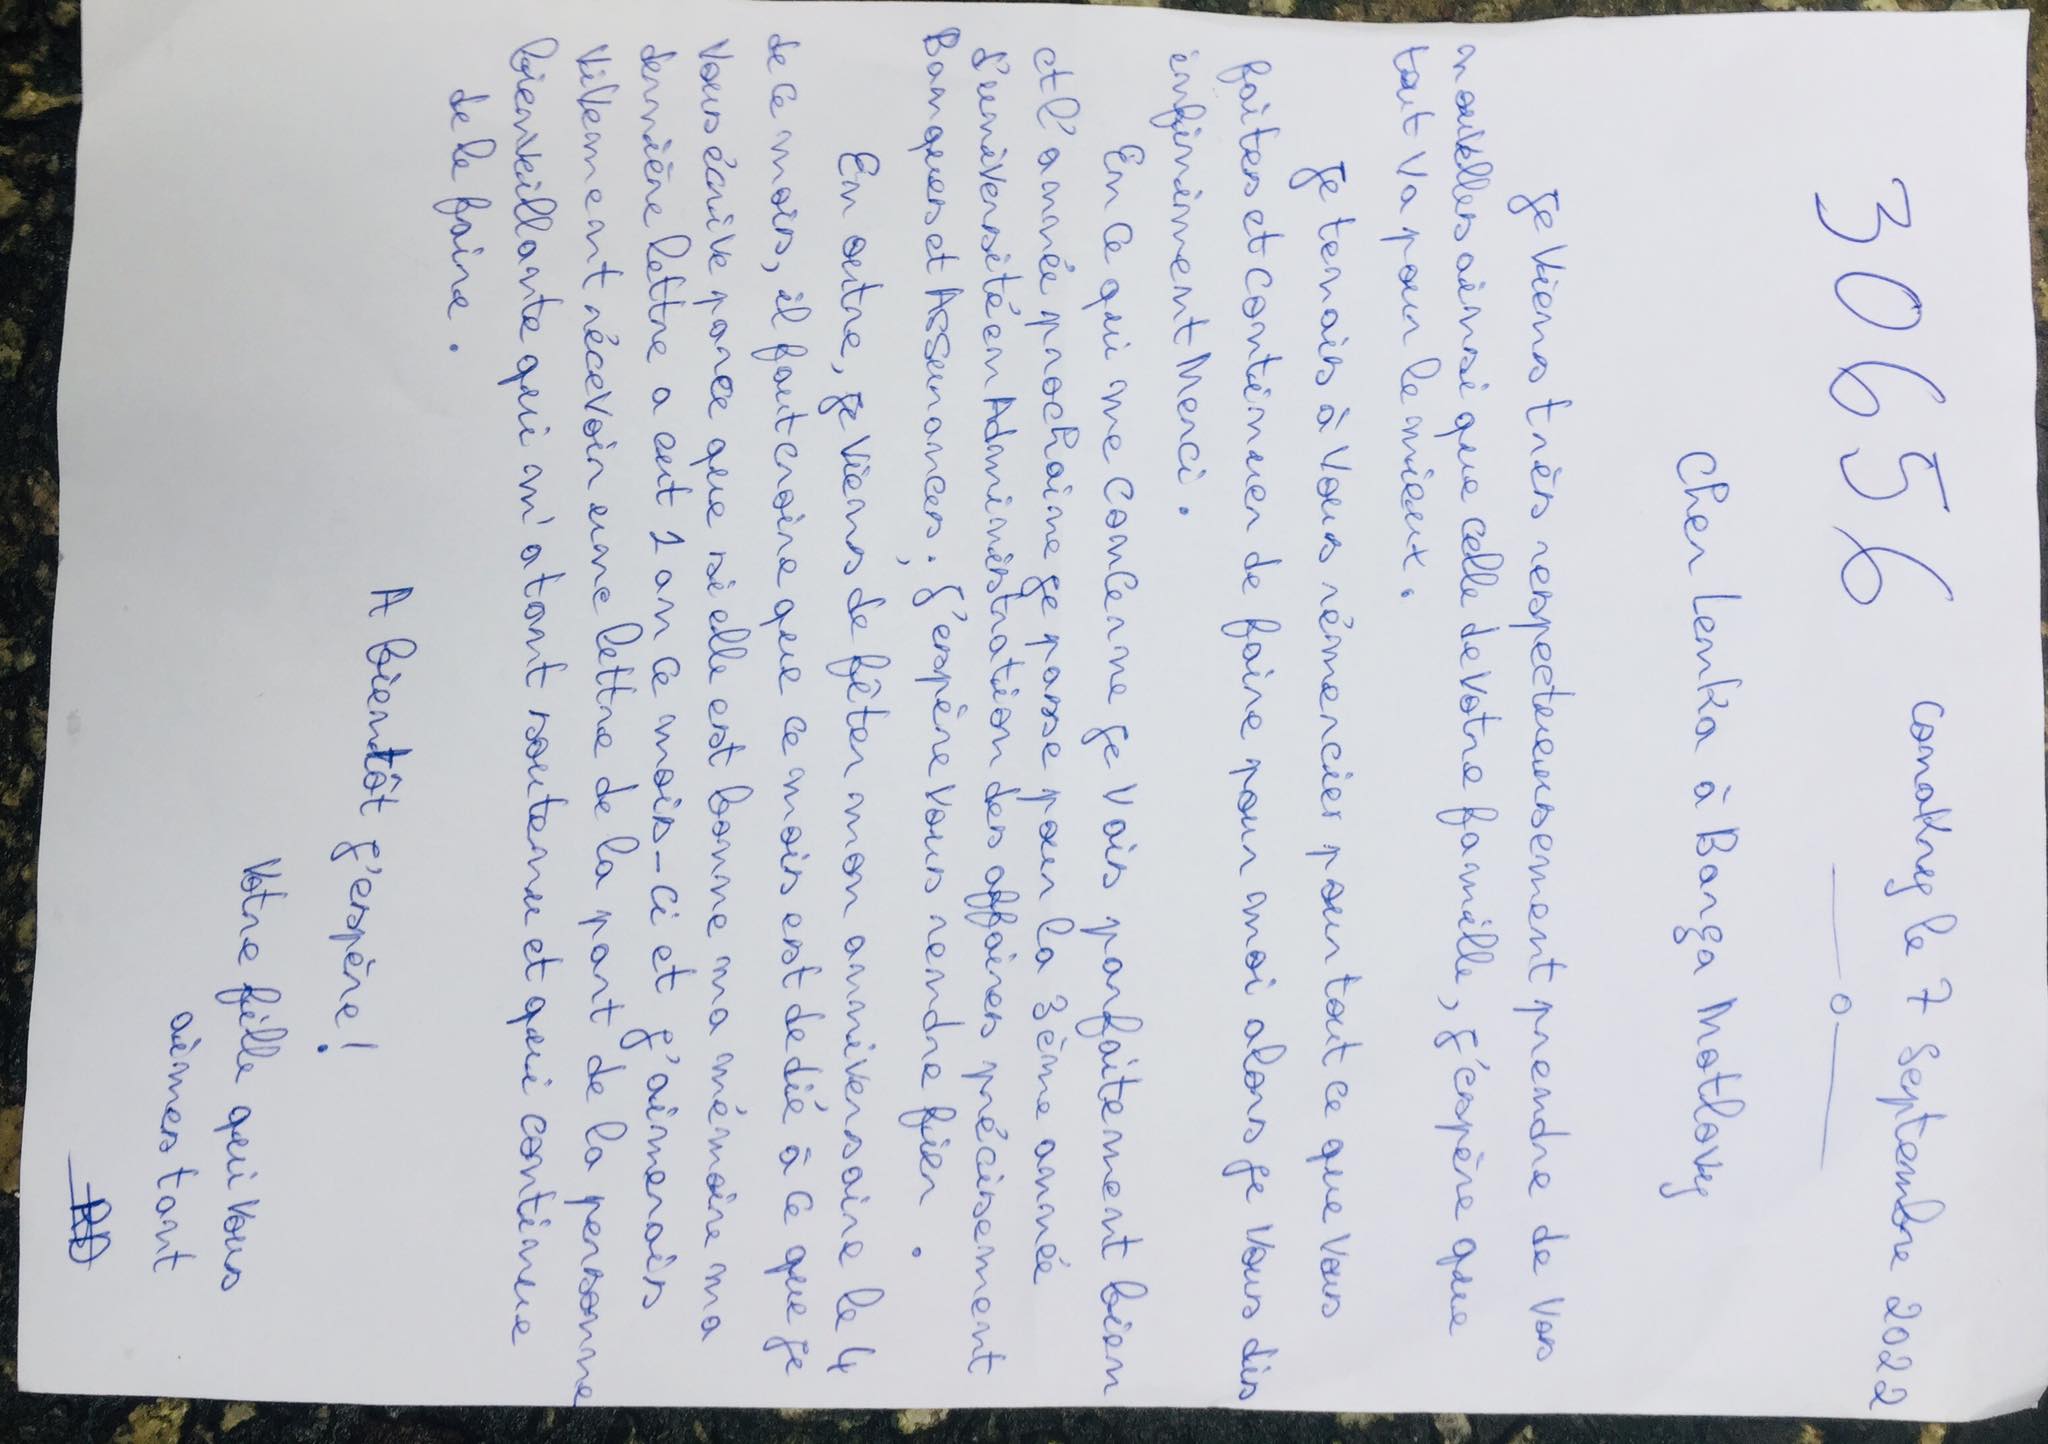 30656
Conakry le 7 Septembre 2022
Cher Lenka à Banga Matlovy
Je Viens très respectueusement prendre de Vos
nouvelles ainsi que celle de Votre famille, j'espère que
tout Va pour le mieux.
Je tenais à Vous rémercier pour tout ce que Vous
faites et continuer de faire pour moi alors je Vous dis
infiniment Merci.
En ce qui me concerne je Vais parfaitement bien
et l'année prochaine je passe pour la 3ème année
d'université en Administration des affaires précisement
Banques et Assurances, j'espère Vous rendre fier.
En outre, je Viens de fêter mon anniversaire le 4
de ce mois, il faut croire que ce mois est dedié à ce que je
Vous écrive parce que si elle est bonne ma mémoire ma
dernière lettre a eut 1 an ce mois-ci et j'aimerais
Vivement récevoir une lettre de la part de la personne
bienveillante qui m'a tant soutenu et qui continue
de le faire.
A bientôt j'espère!
Votre fille qui Vous
aimes tant